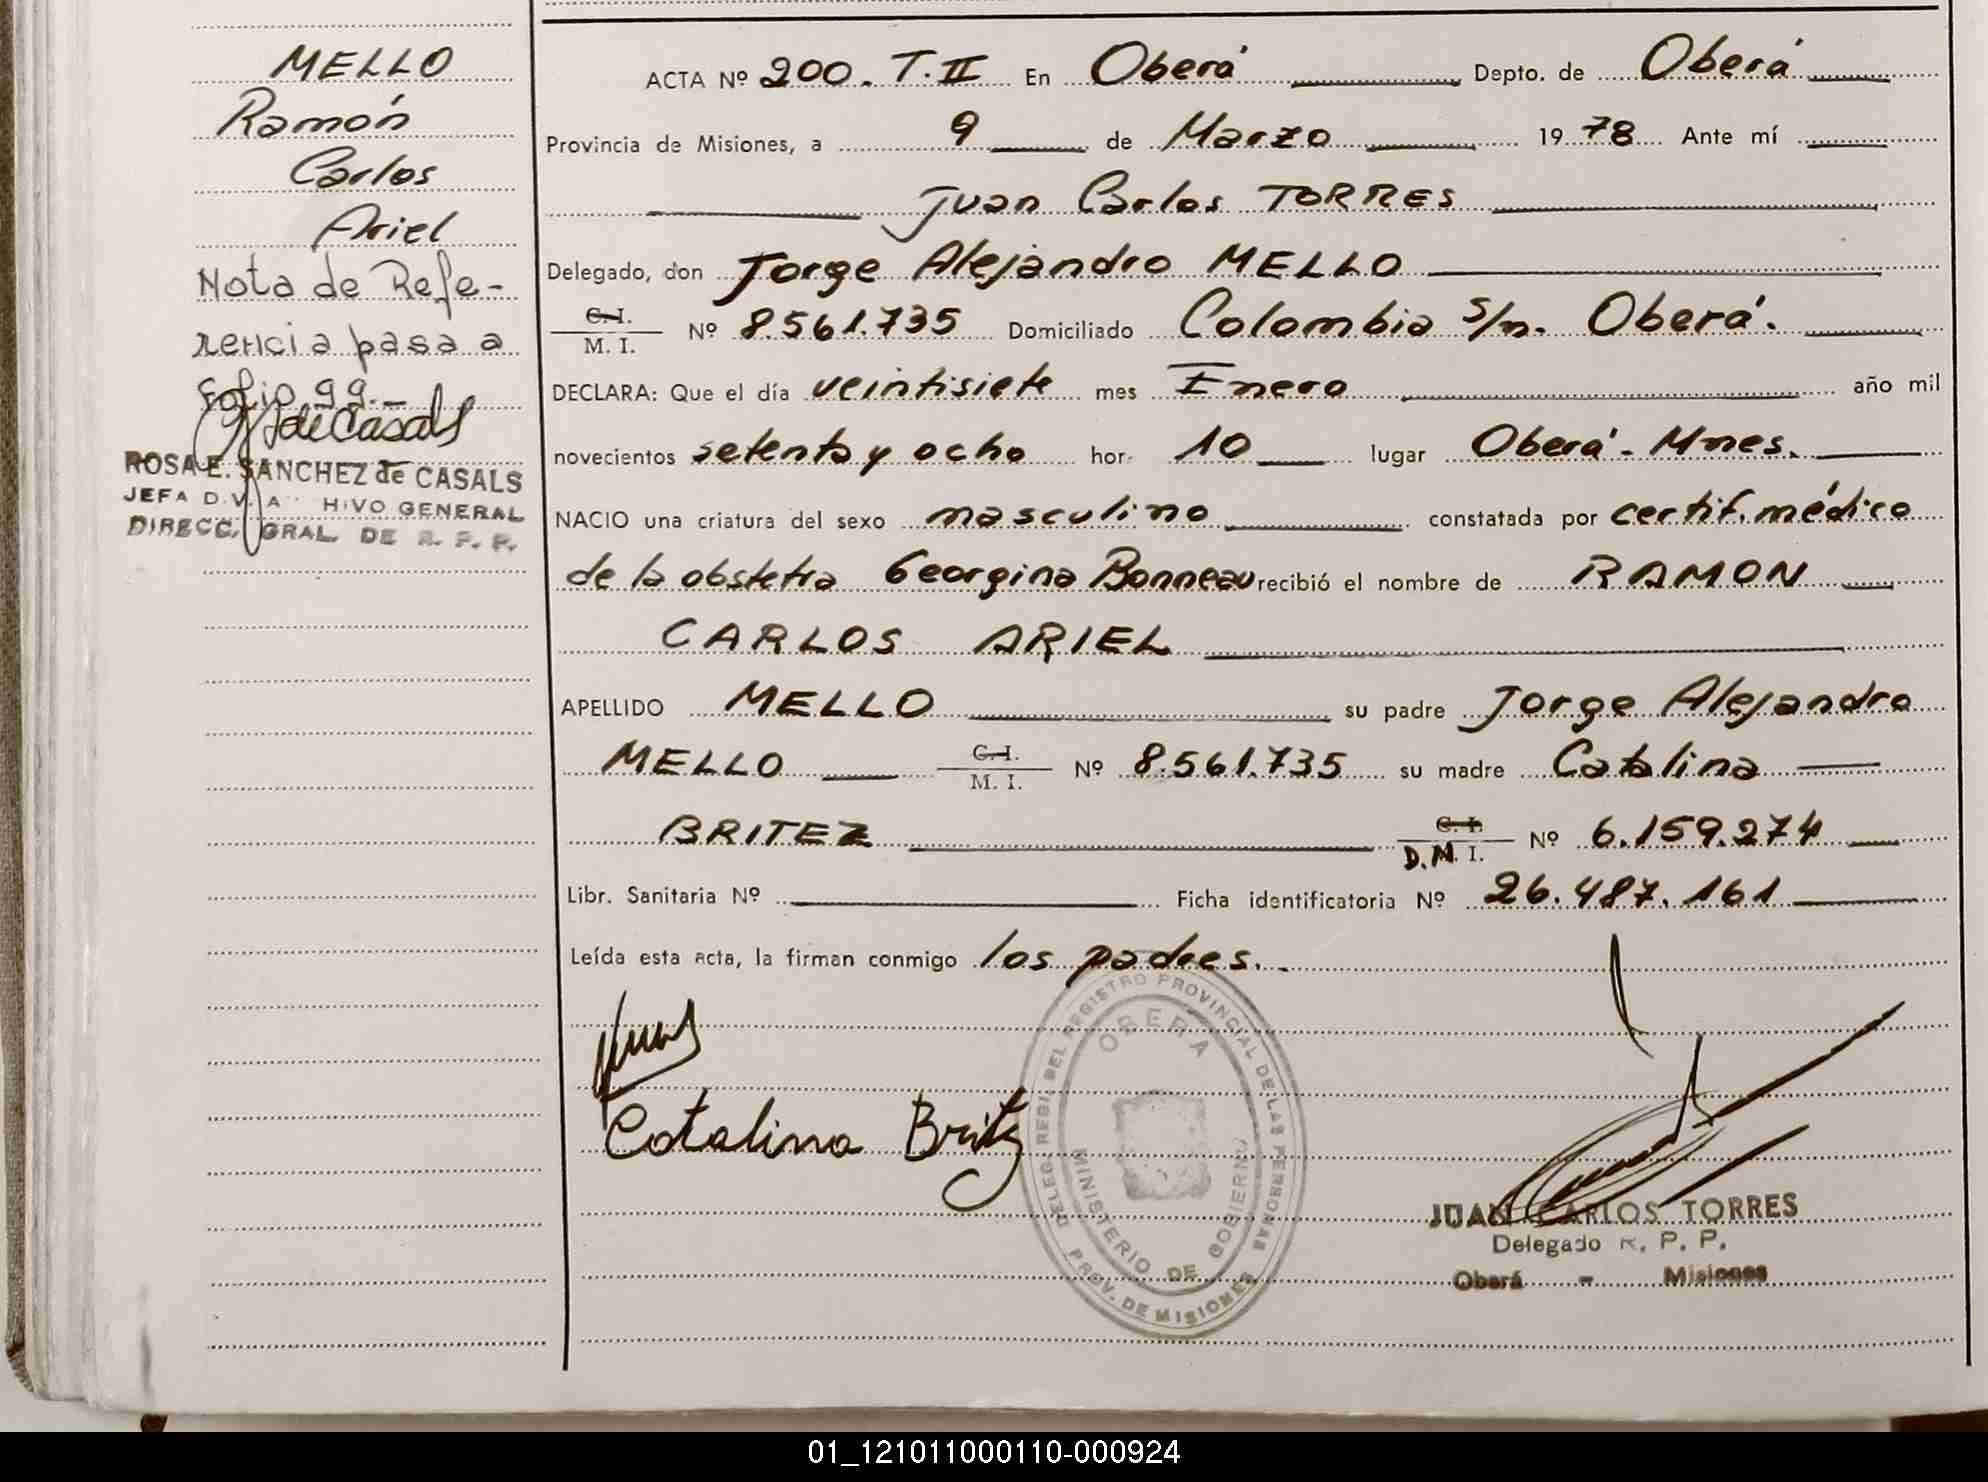 MELLO
Ramón
Carlos
Ariel
Nota de Refe-
rencia pasa a
Folio 99.-
ROSA E. SANCHEZ de CASALS
JEFA DIV. A HIVO GENERAL
DIRECC. GRAL. DE R. P. P.
ACTA Nº 200. T. II En Oberá Depto. de Oberá
Provincia de Misiones, a 9 de Marzo 1978 Ante mí
Juan Carlos TORRES
Delegado, don Jorge Alejandro MELLO
C. I.
M. I. Nº 8.561.735 Domiciliado Colombia s/n. Oberá.
DECLARA: Que el día veintisiete mes Enero año mil
novecientos setenta y ocho hor. 10 lugar Oberá - Mnes.
NACIO una criatura del sexo masculino constatada por certif. médico
de la obstetra Georgina Bonneau recibió el nombre de RAMON
CARLOS ARIEL
APELLIDO MELLO su padre Jorge Alejandro
MELLO C. I.
M. I. Nº 8.561.735 su madre Catalina
BRITEZ C. I.
D.M. I. Nº 6.159.274
Libr. Sanitaria Nº Ficha identificatoria Nº 26.487.161
Leída esta acta, la firman conmigo los padres.
Catalina Britz
DELEG. REG. DEL REGISTRO PROVINCIAL DE LAS PERSONAS
OBERA
MINISTERIO DE GOBIERNO
PROV. DE MISIONES
JUAN CARLOS TORRES
Delegado R. P. P.
Oberá - Misiones
01_121011000110-000924